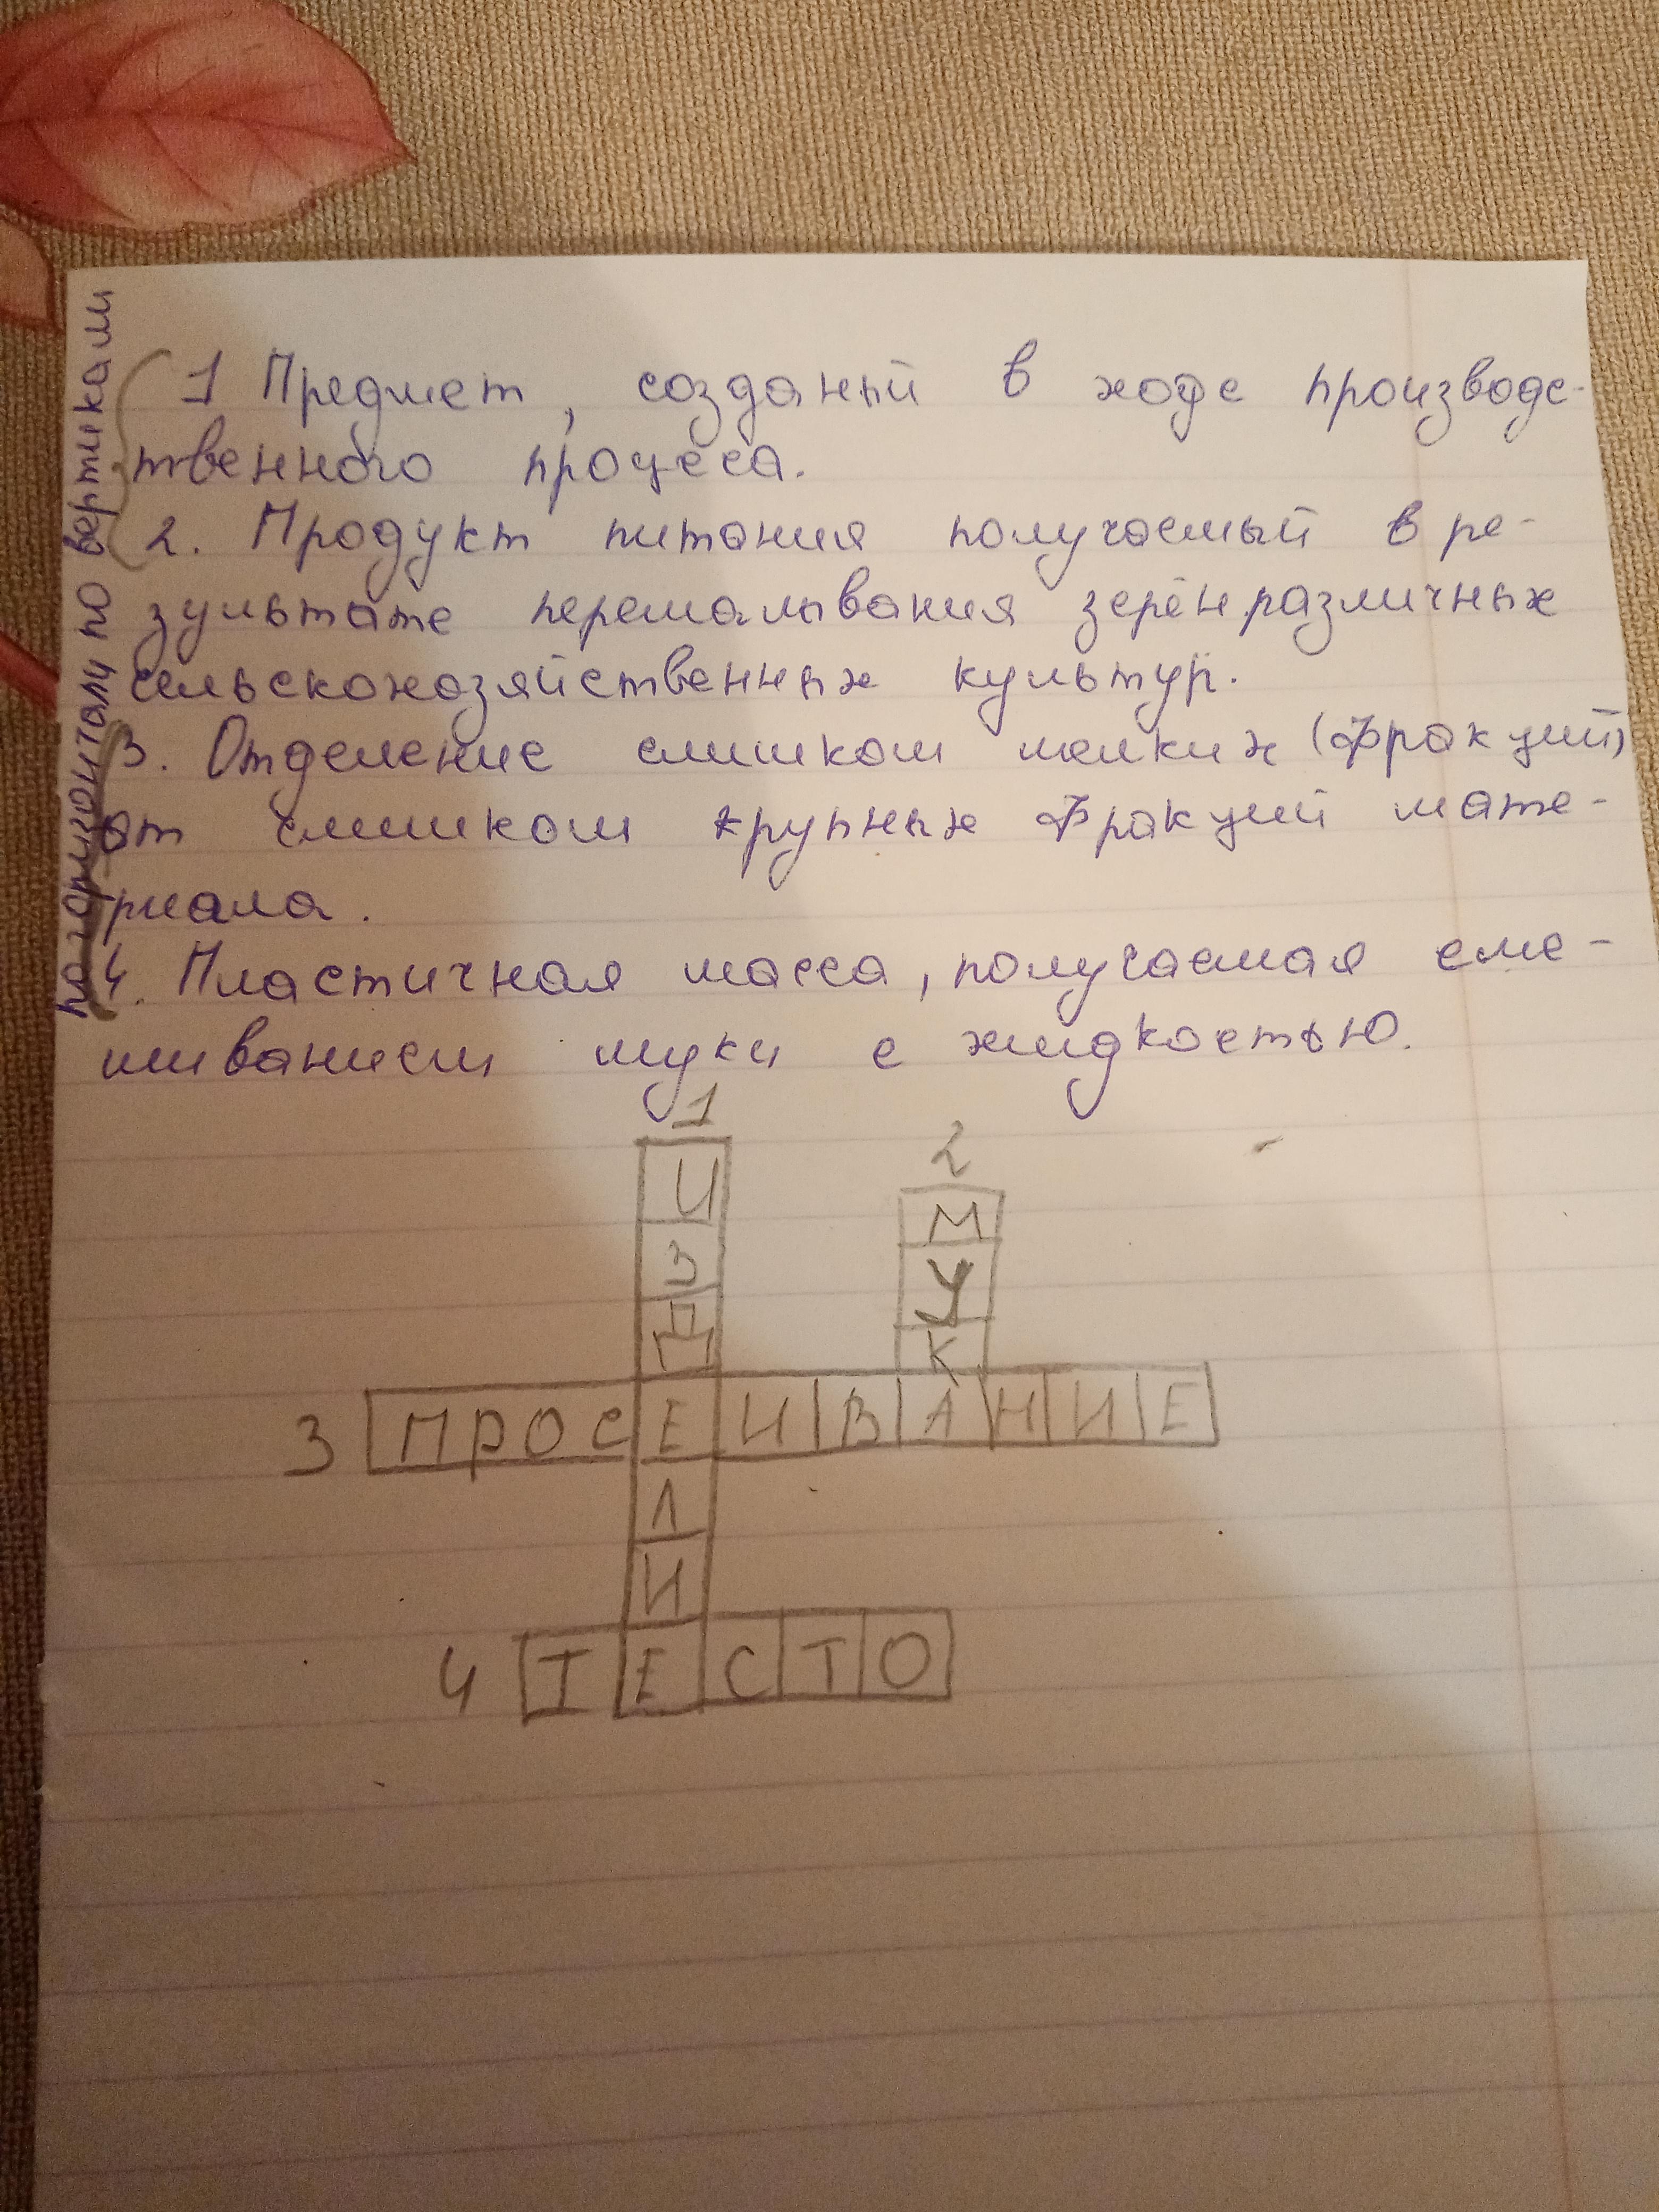 по вертикали
1 Предмет, созданый в ходе производс-
твенного процеса.
2. Продукт питания получаемый в ре-
зультате перемалывания зерён различных
сельскохозяйственных культур.
по горизонтали
3. Отделение слишком мелких (фракций)
от слишком крупных фракций мате-
риала.
4. Пластичная масса, получаемая сме-
шиванием муки с жидкостью.
1
2
И
М
З
У
Д
К
3 ПРОСЕИВАНИЕ
Л
И
4 ТЕСТО